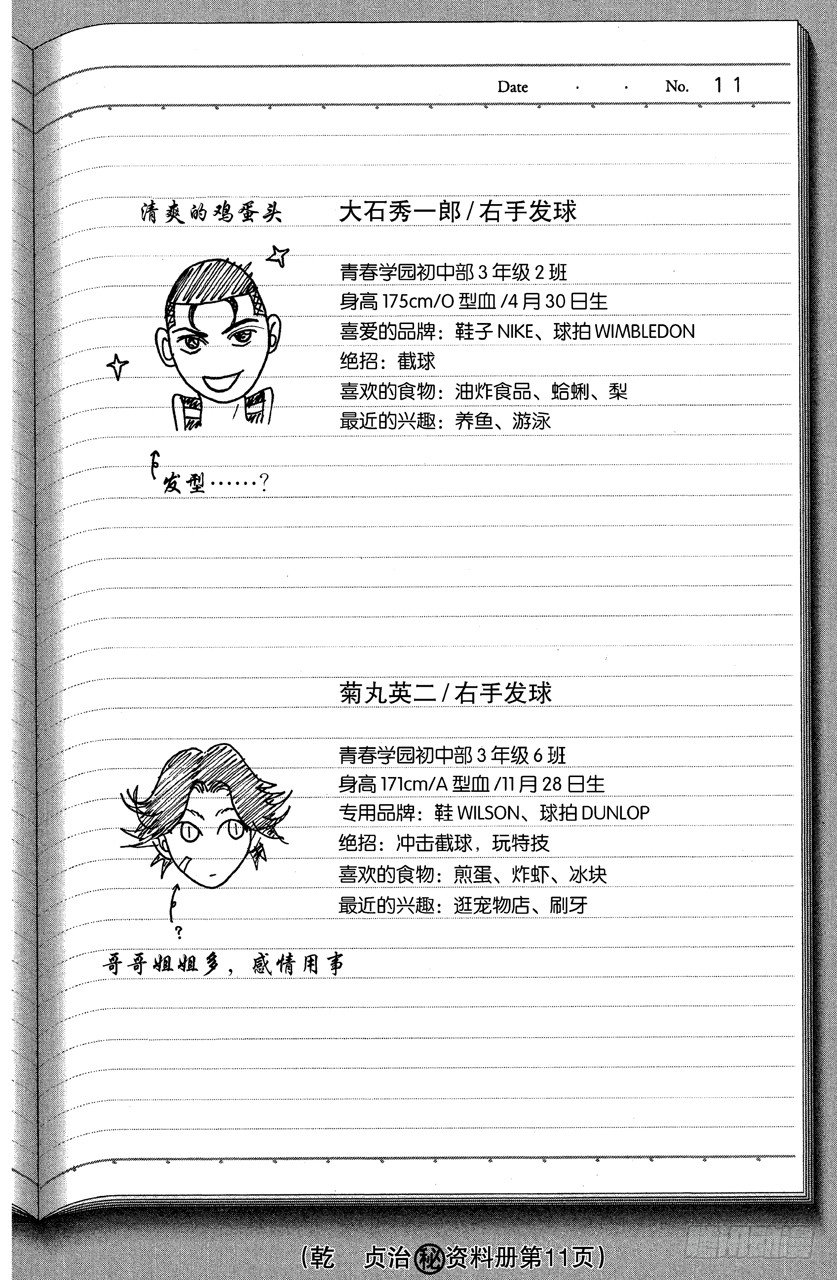 Date . . No. 11
清爽的鸡蛋头
大石秀一郎/右手发球
青春学园初中部3年级2班
身高175cm/O型血/4月30日生
喜爱的品牌：鞋子NIKE、球拍WIMBLEDON
绝招：截球
喜欢的食物：油炸食品、蛤蜊、梨
最近的兴趣：养鱼、游泳
发型……？
菊丸英二/右手发球
青春学园初中部3年级6班
身高171cm/A型血/11月28日生
专用品牌：鞋WILSON、球拍DUNLOP
绝招：冲击截球，玩特技
喜欢的食物：煎蛋、炸虾、冰块
最近的兴趣：逛宠物店、刷牙
？
哥哥姐姐多，感情用事
（乾　贞治㊙资料册第11页）